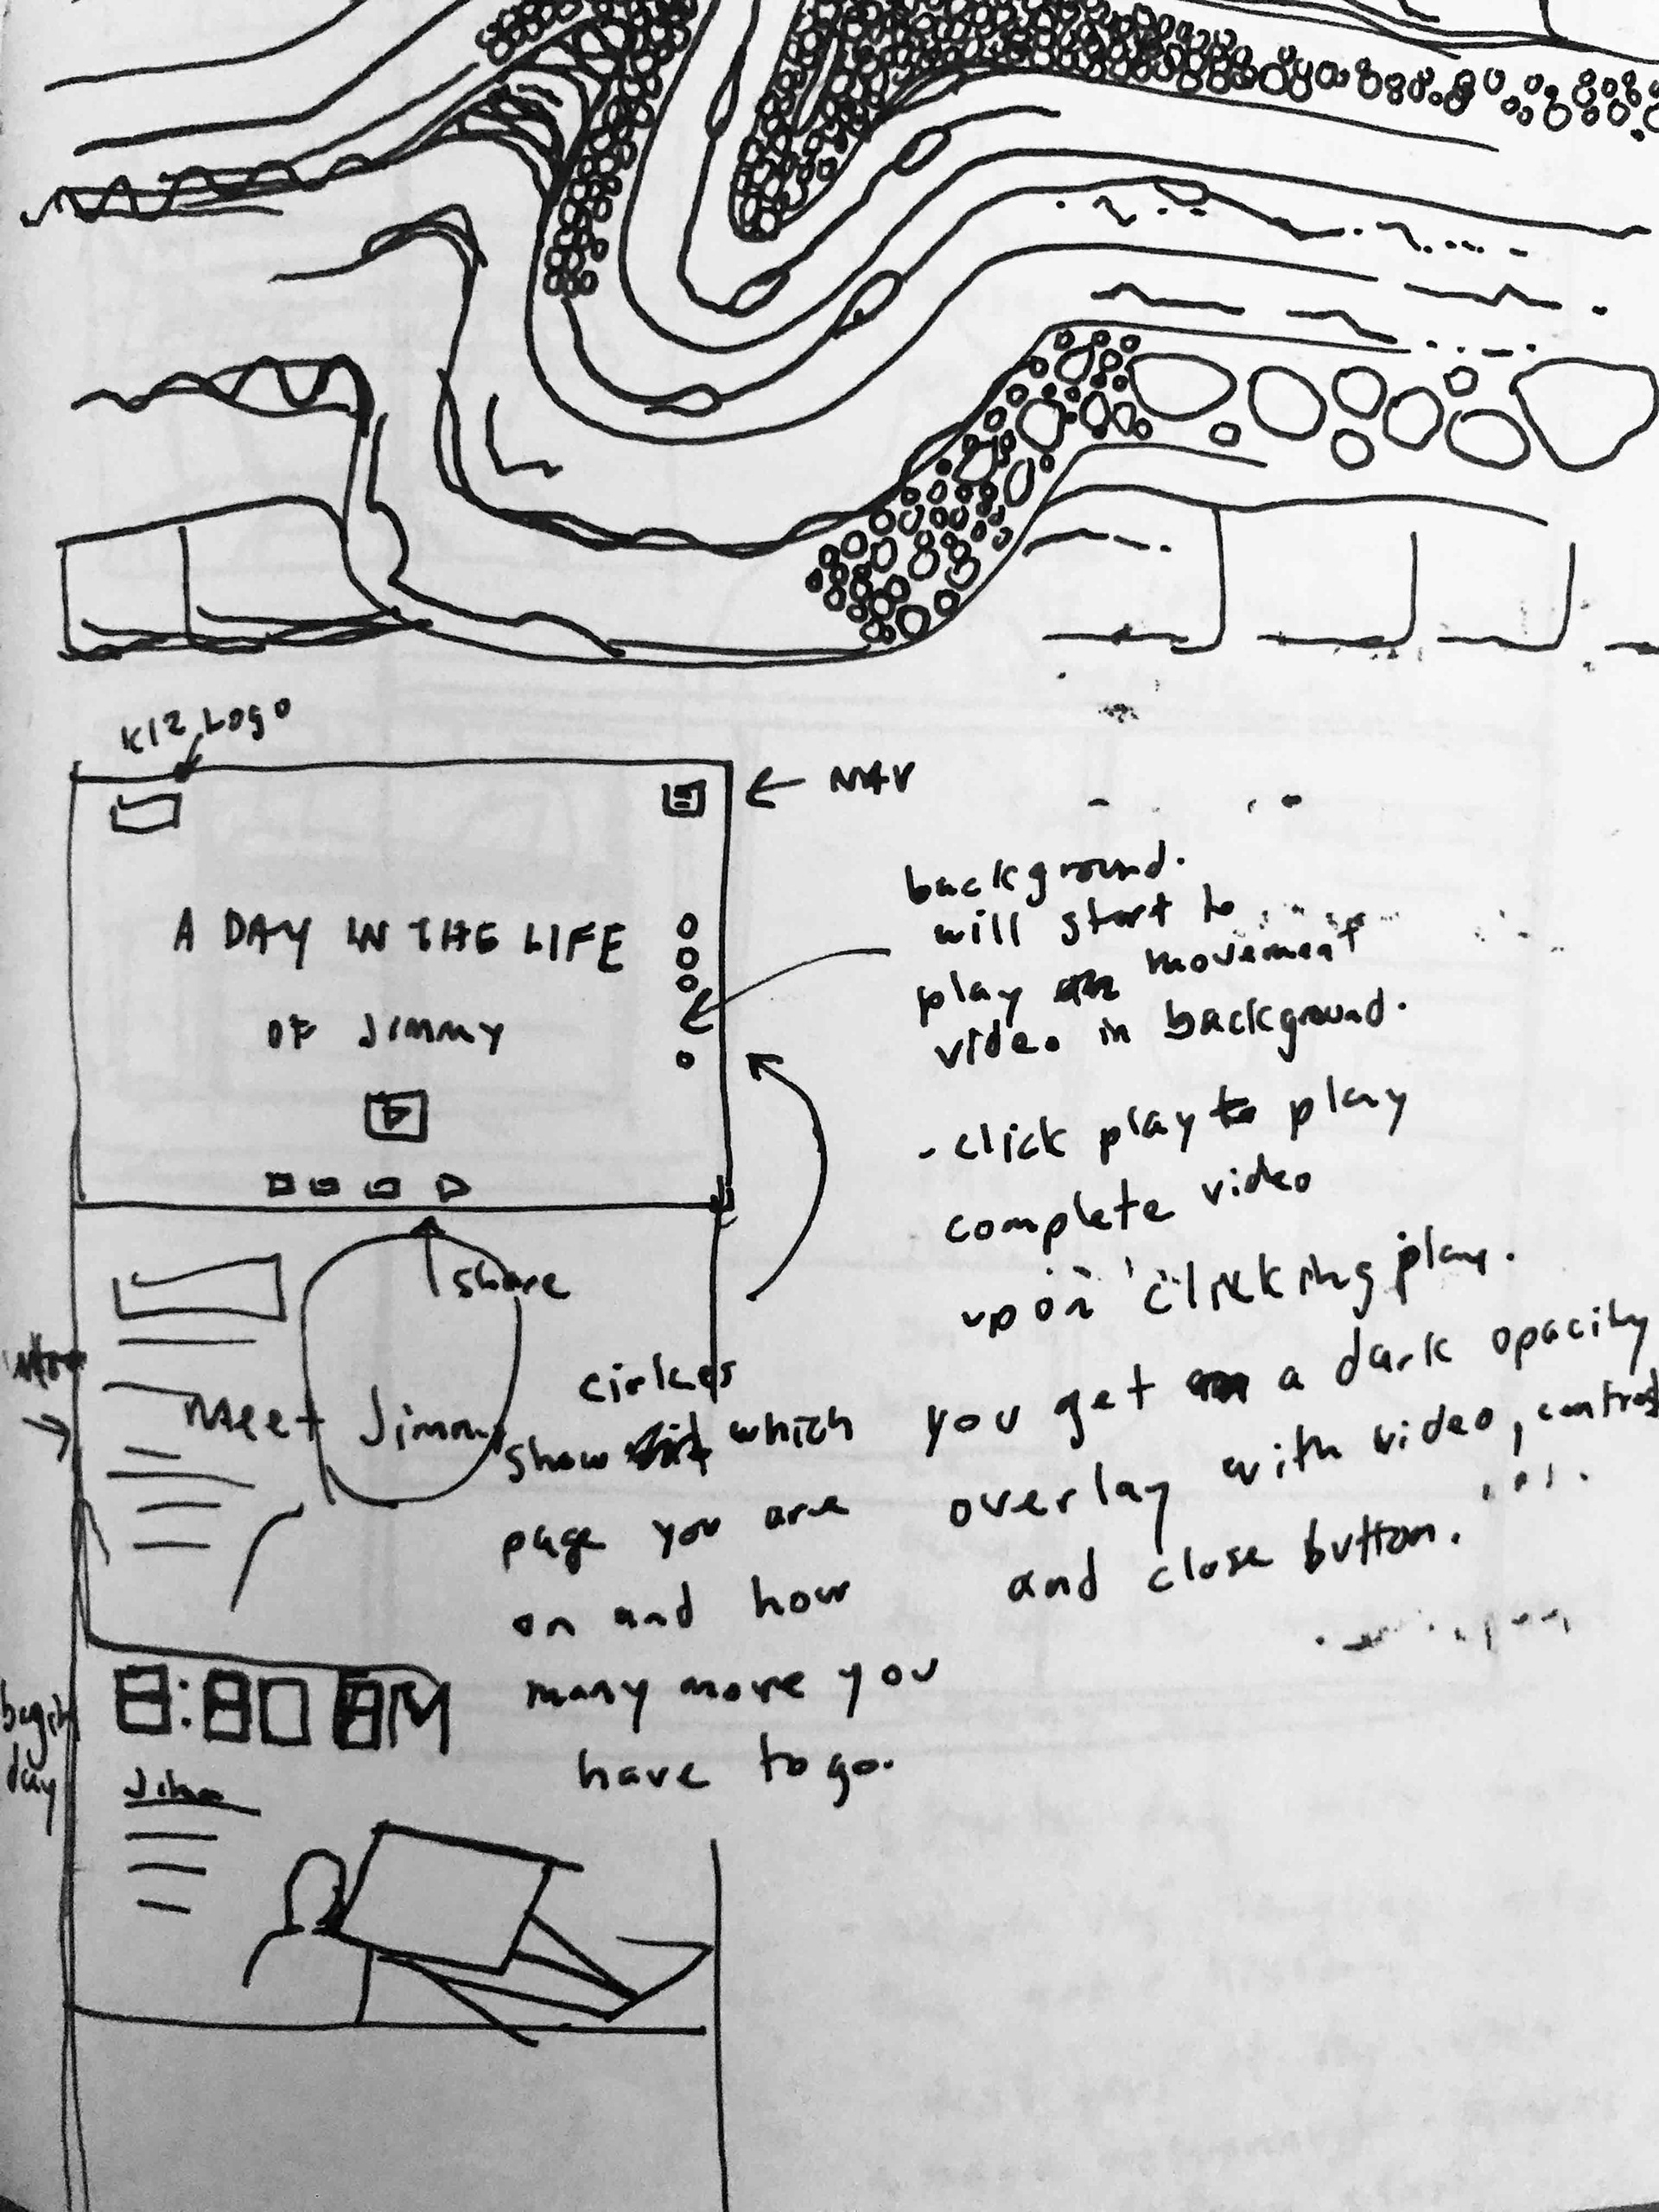 K12 Logo
← NAV
A DAY IN THE LIFE
OF JIMMY
background.
will start to
play movement
video in background.
- click play to play
complete video
upon clicking play.
you get a dark opacity
overlay with video, controls
and close button.
share
intro
Meet Jimmy
cirkles
show which
page you are
on and how
many more you
have to go.
8:80 AM
begin
day